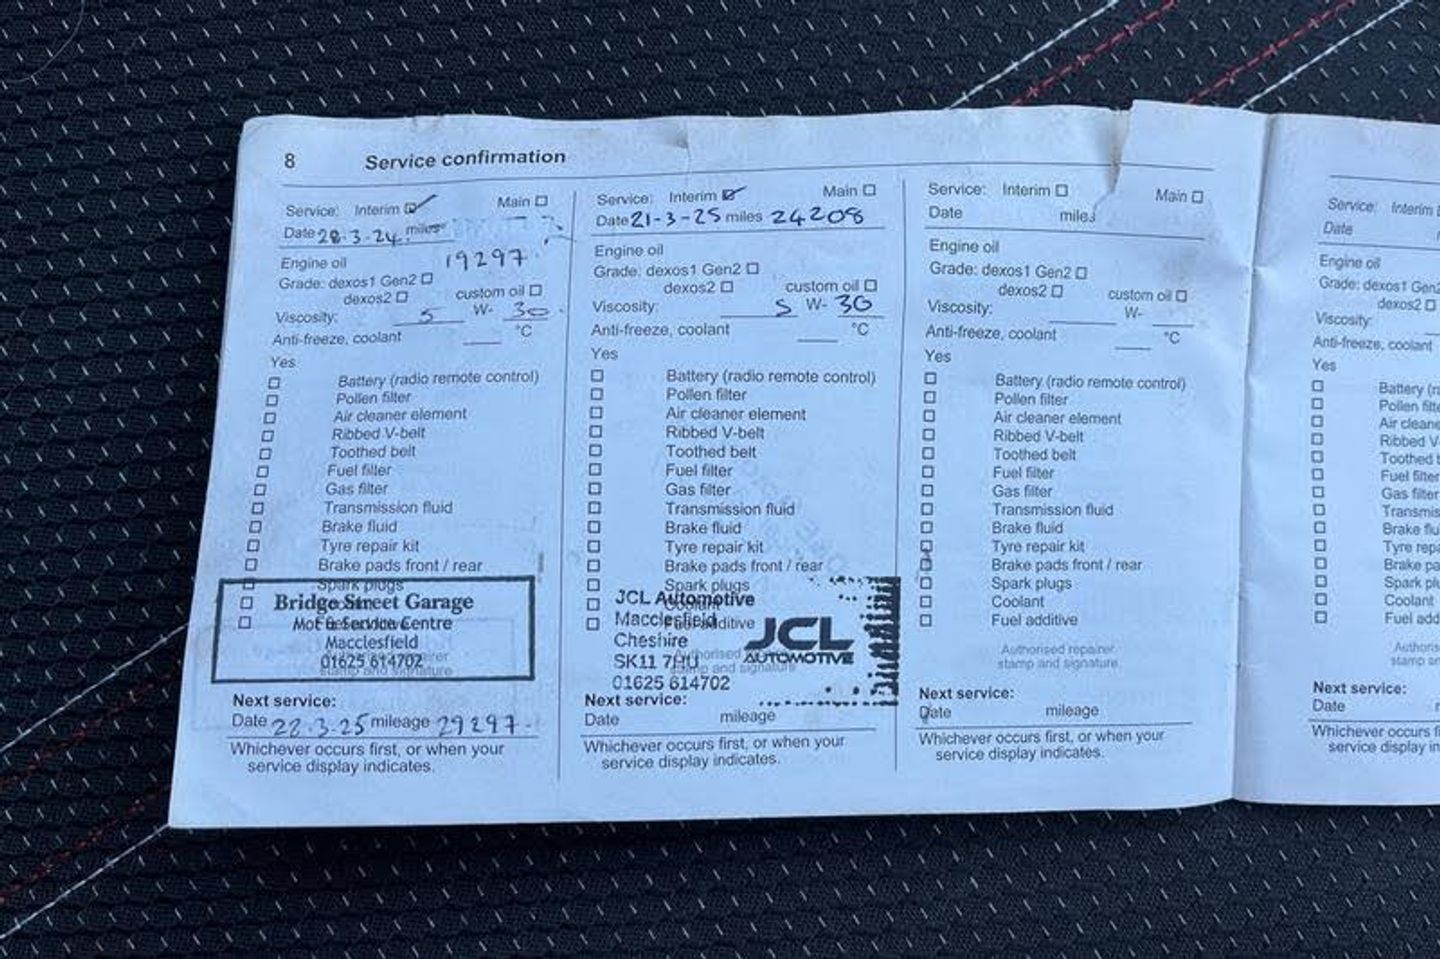 8 Service confirmation
Service: Interim Main
Date 28.3.24 miles
19297
Engine oil
Grade: dexos1 Gen2
dexos2 custom oil
Viscosity: 5 W- 30
Anti-freeze, coolant °C
Yes
Battery (radio remote control)
Pollen filter
Air cleaner element
Ribbed V-belt
Toothed belt
Fuel filter
Gas filter
Transmission fluid
Brake fluid
Tyre repair kit
Brake pads front / rear
Spark plugs
Bridge Street Garage
Mot & Service Centre
Macclesfield
01625 614702
stamp and signature
Next service:
Date 28.3.25 mileage 29297
Whichever occurs first, or when your
service display indicates.
Service: Interim Main
Date 21-3-25 miles 24208
Engine oil
Grade: dexos1 Gen2
dexos2 custom oil
Viscosity: 5 W- 30
Anti-freeze, coolant °C
Yes
Battery (radio remote control)
Pollen filter
Air cleaner element
Ribbed V-belt
Toothed belt
Fuel filter
Gas filter
Transmission fluid
Brake fluid
Tyre repair kit
Brake pads front / rear
Spark plugs
Coolant
Fuel additive
JCL Automotive
Macclesfield
Cheshire
SK11 7HU
01625 614702
JCL
AUTOMOTIVE
Authorised
stamp and signature
Next service:
Date mileage
Whichever occurs first, or when your
service display indicates.
Service: Interim Main
Date miles
Engine oil
Grade: dexos1 Gen2
dexos2 custom oil
Viscosity: W-
Anti-freeze, coolant °C
Yes
Battery (radio remote control)
Pollen filter
Air cleaner element
Ribbed V-belt
Toothed belt
Fuel filter
Gas filter
Transmission fluid
Brake fluid
Tyre repair kit
Brake pads front / rear
Spark plugs
Coolant
Fuel additive
Authorised repairer
stamp and signature
Next service:
Date mileage
Whichever occurs first, or when your
service display indicates.
Service: Interim
Date
Engine oil
Grade: dexos1 Gen2
dexos2
Viscosity:
Anti-freeze, coolant
Yes
Battery
Pollen
Air
Ribbed
Toothed
Fuel filter
Gas filter
Brake
Tyre
Brake
Spark
Coolant
Fuel
stamp
Next service:
Date
Whichever occurs
service display